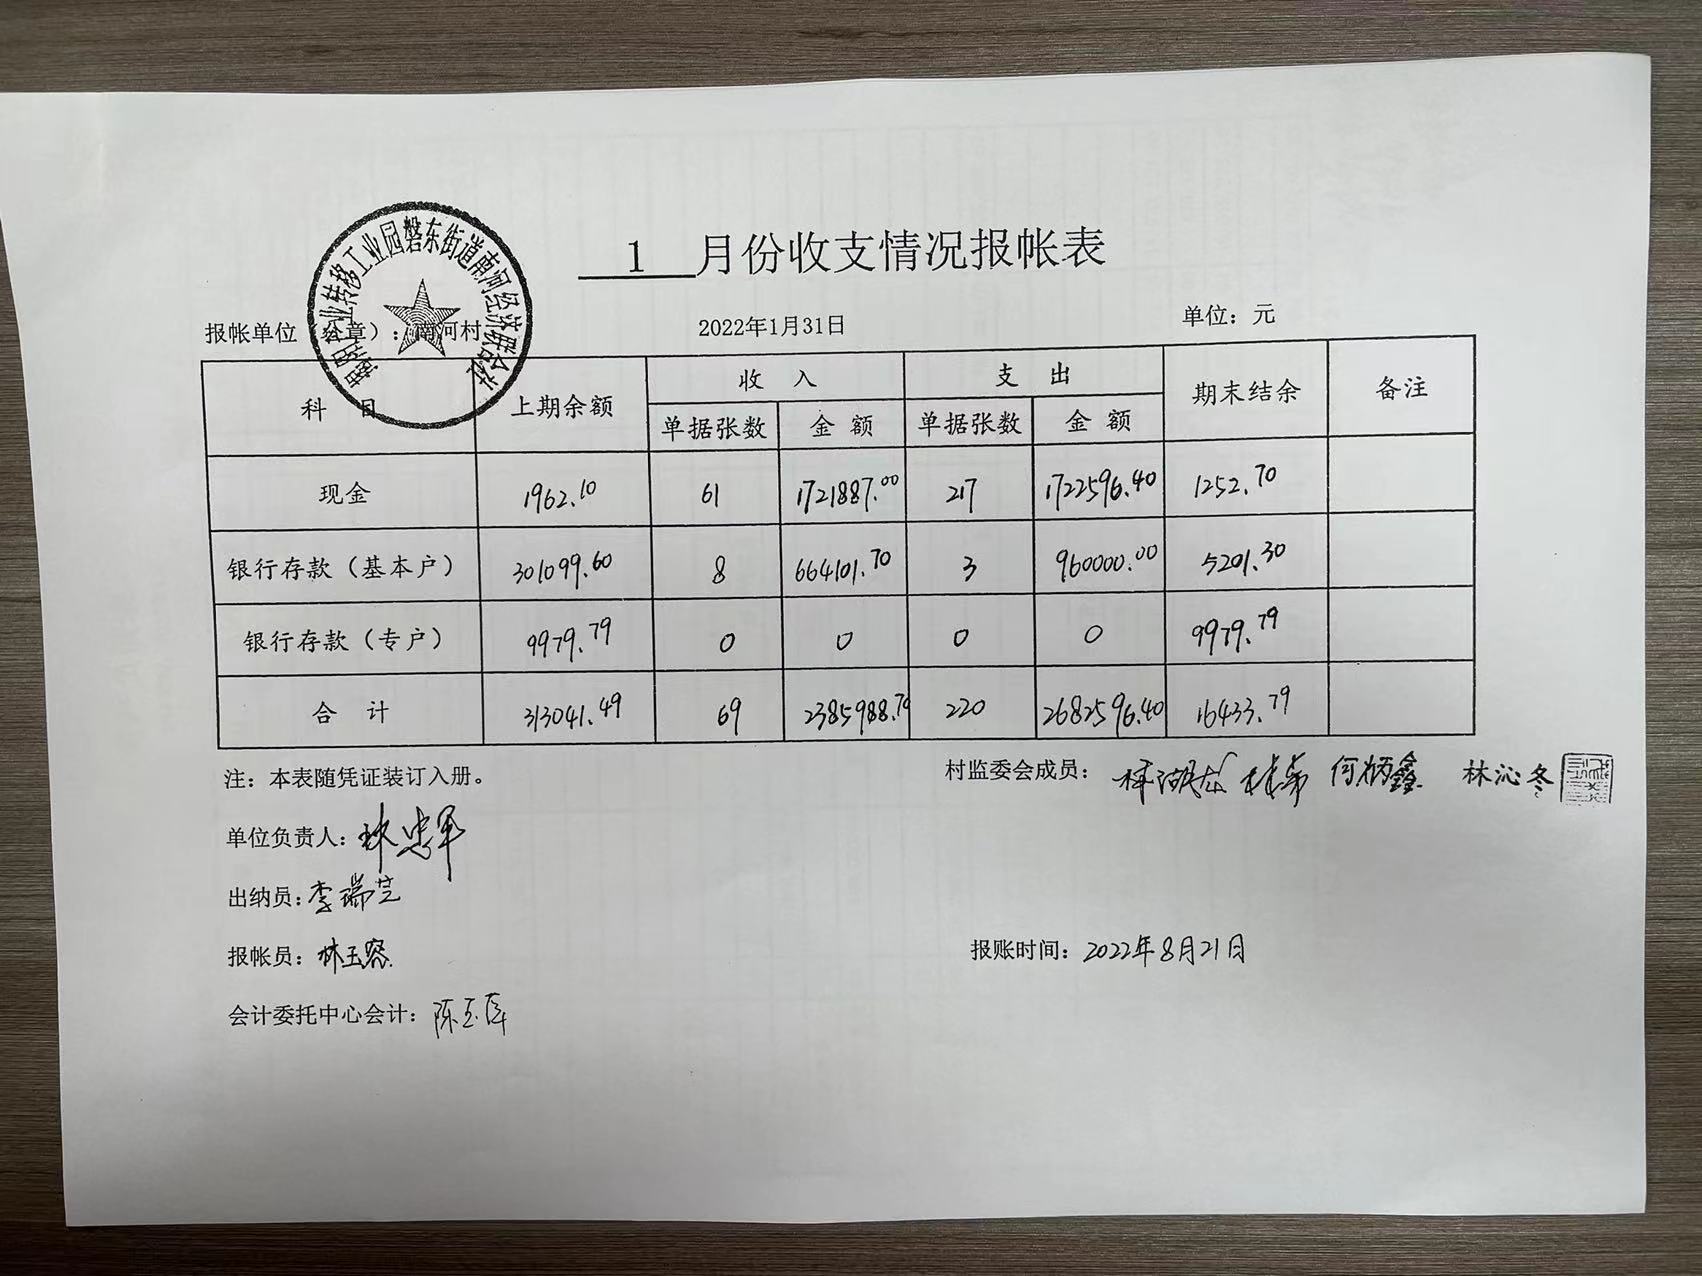 1 月份收支情况报帐表
揭阳产业转移工业园磐东街道南河经济联合社
报帐单位（公章）：南河村 2022年1月31日 单位：元
科 目 上期余额 收 入 支 出 期末结余 备注
单据张数 金 额 单据张数 金 额
现金 1962.10 61 1721887.00 217 1722596.40 1252.70
银行存款（基本户） 301099.60 8 664101.70 3 960000.00 5201.30
银行存款（专户） 9979.79 0 0 0 0 9979.79
合 计 313041.49 69 2385988.70 220 2682596.40 16433.79
注：本表随凭证装订入册。 村监委会成员： 何炳鑫 林沁冬
单位负责人：林忠军
出纳员：李瑞芝
报帐员：林玉容 报账时间：2022年8月21日
会计委托中心会计：陈玉